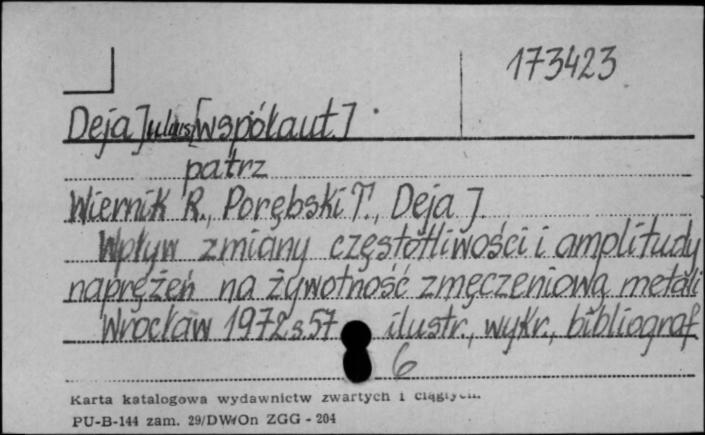 173423
Deja Juliusz [współaut.]
patrz
Wiernik R., Porębski T., Deja J.
Wpływ zmiany częstotliwości i amplitudy
naprężeń na żywotność zmęczeniową metali
Wrocław 1972 s. 57 ilustr., wykr., bibliograf
6
Karta katalogowa wydawnictw zwartych i ciągłych.
PU-B-144 zam. 29/DWOn ZGG - 204